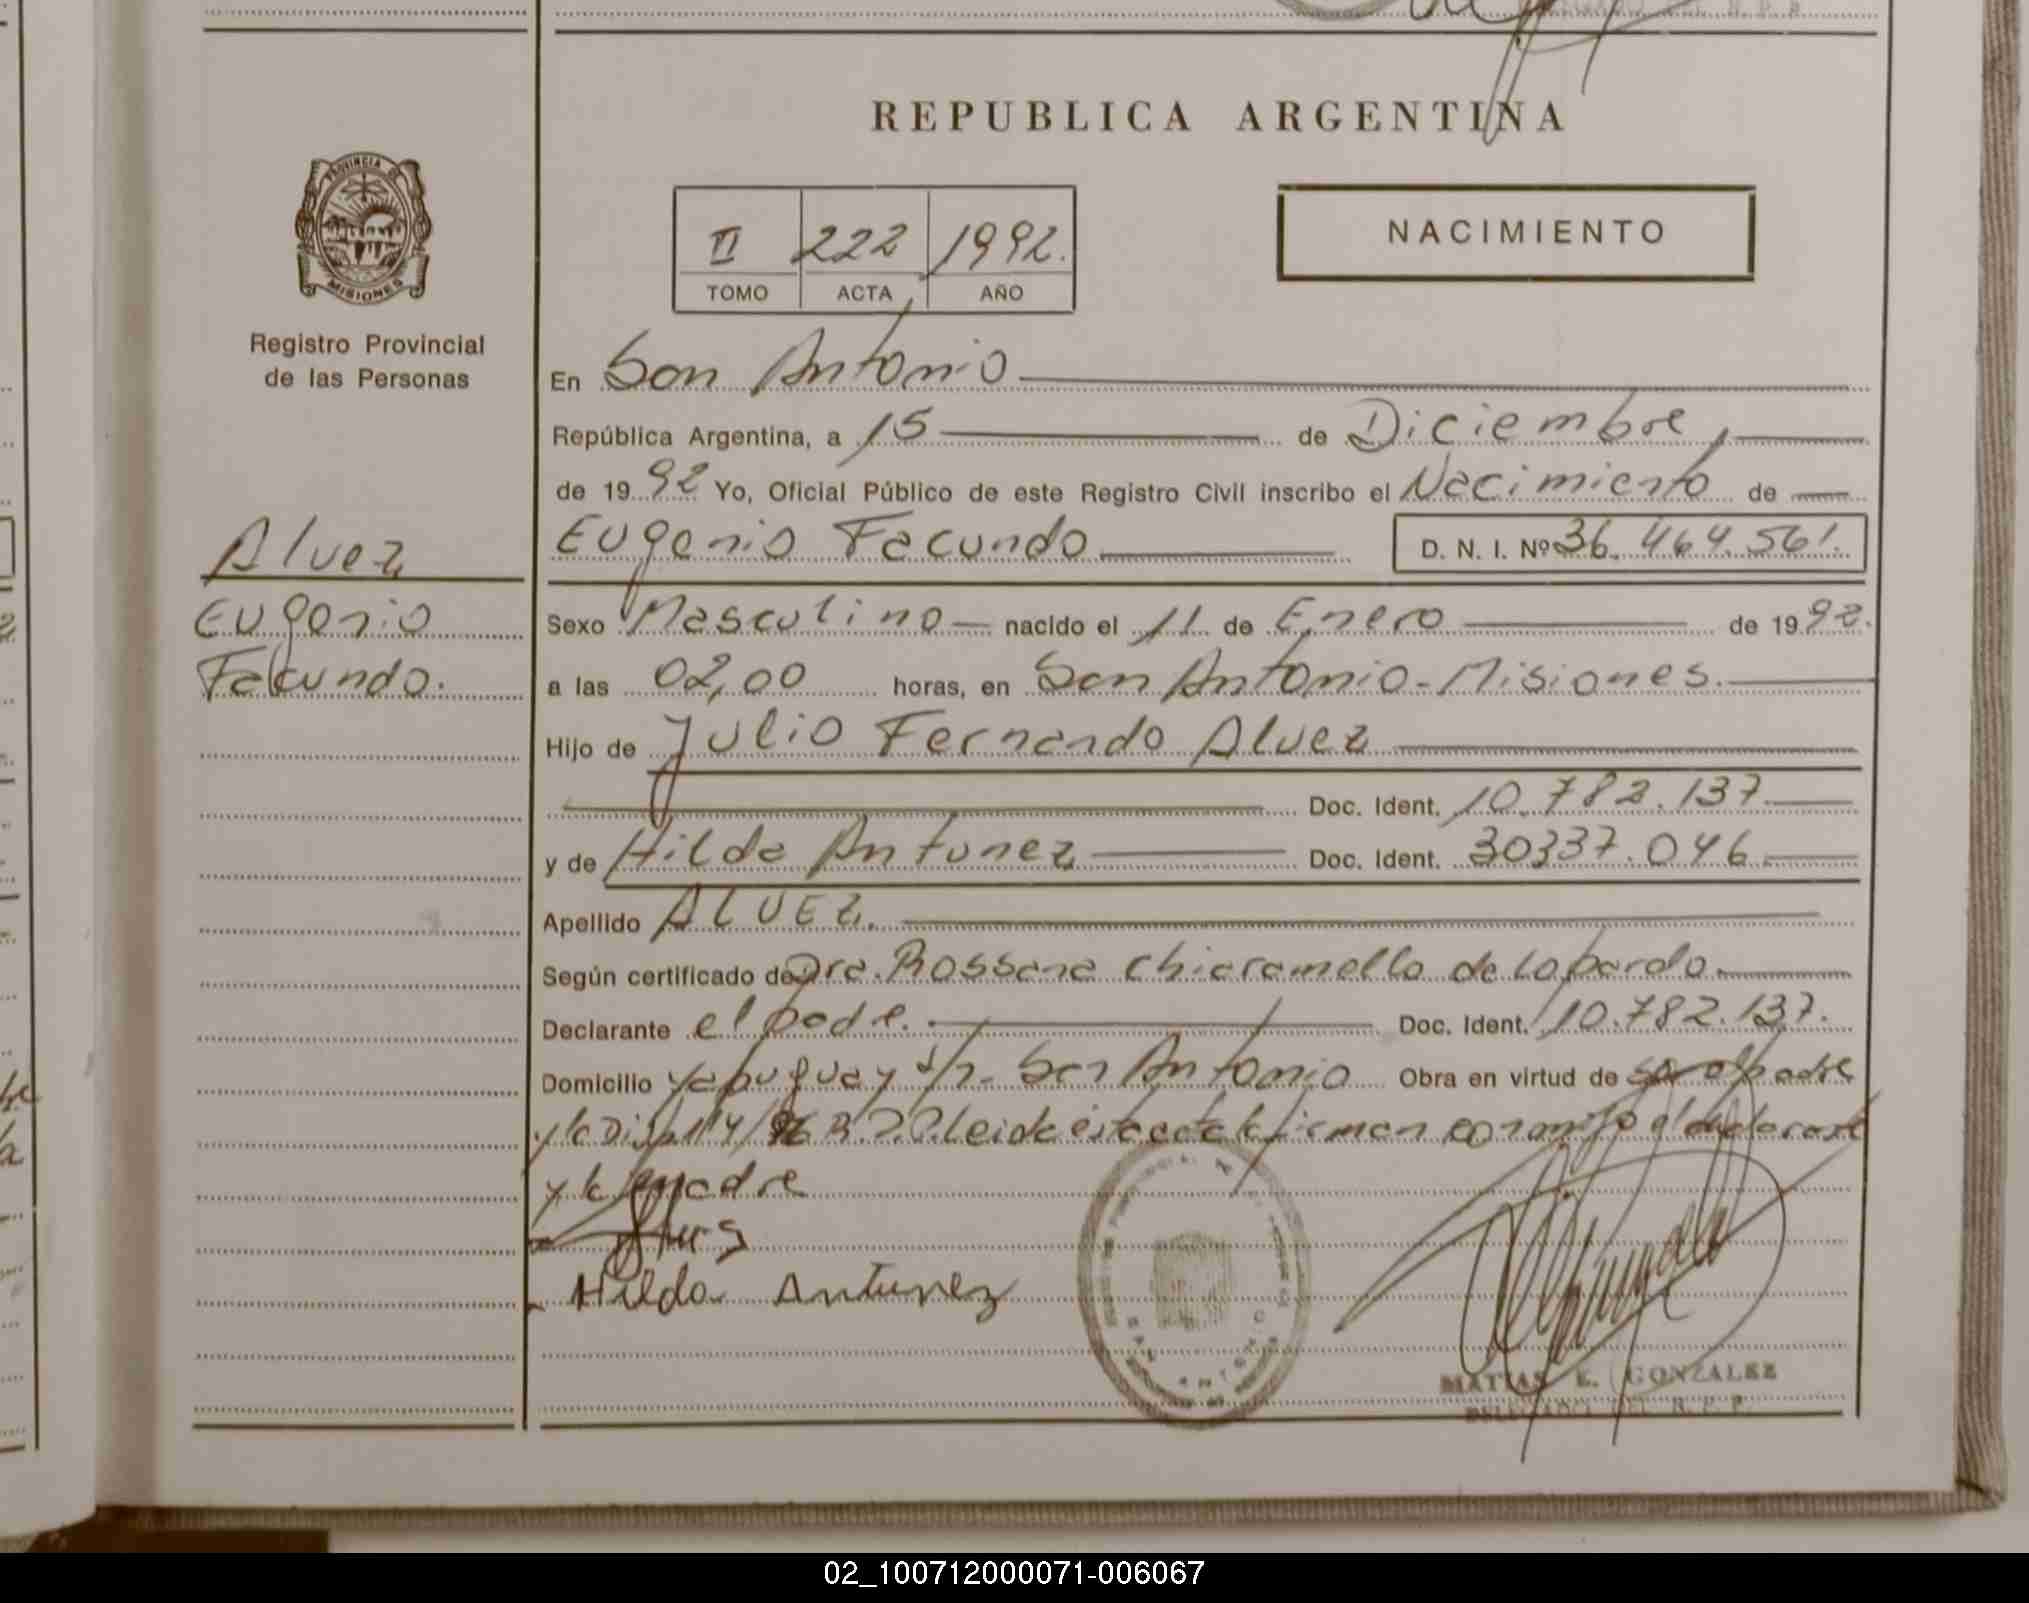 REPUBLICA ARGENTINA
PROVINCIA DE
MISIONES
Registro Provincial
de las Personas
II 222 1992.
TOMO ACTA AÑO
NACIMIENTO
En San Antonio
República Argentina, a 15 de Diciembre,
de 1992 Yo, Oficial Público de este Registro Civil inscribo el Nacimiento de
Alvez
Eugenio
Facundo.
Eugenio Facundo D. N. I. Nº 36.464.561.
Sexo Masculino nacido el 11 de Enero de 1992.
a las 02,00 horas, en San Antonio - Misiones.
Hijo de Julio Fernando Alvez
Doc. Ident. 10.782.137
y de Hilda Antunez Doc. Ident. 30337.046
Apellido ALVEZ.
Según certificado de Dra. Rossana Chiaramello de Lobardo.
Declarante el padre. Doc. Ident. 10.782.137.
Domicilio Yapuguay s/n - San Antonio Obra en virtud de ser el padre
y la Disp 114/ R.P.P. Leida esta acta la firman conmigo el declarante
y la madre
Hilda Antunez
MATIAS E. GONZALEZ
DELEGADO DEL R. P. P.
02_100712000071-006067